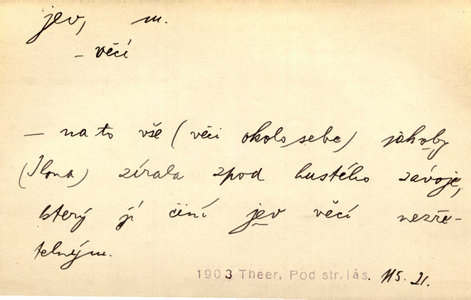 jev, m.
– věcí
– na to vše (věci okolo sebe) jakoby
(Ilona) zírala zpod hustého závoje,
který jí činí jev věcí nezře-
telným.
1903 Theer, Pod str. lás. 115. 21.